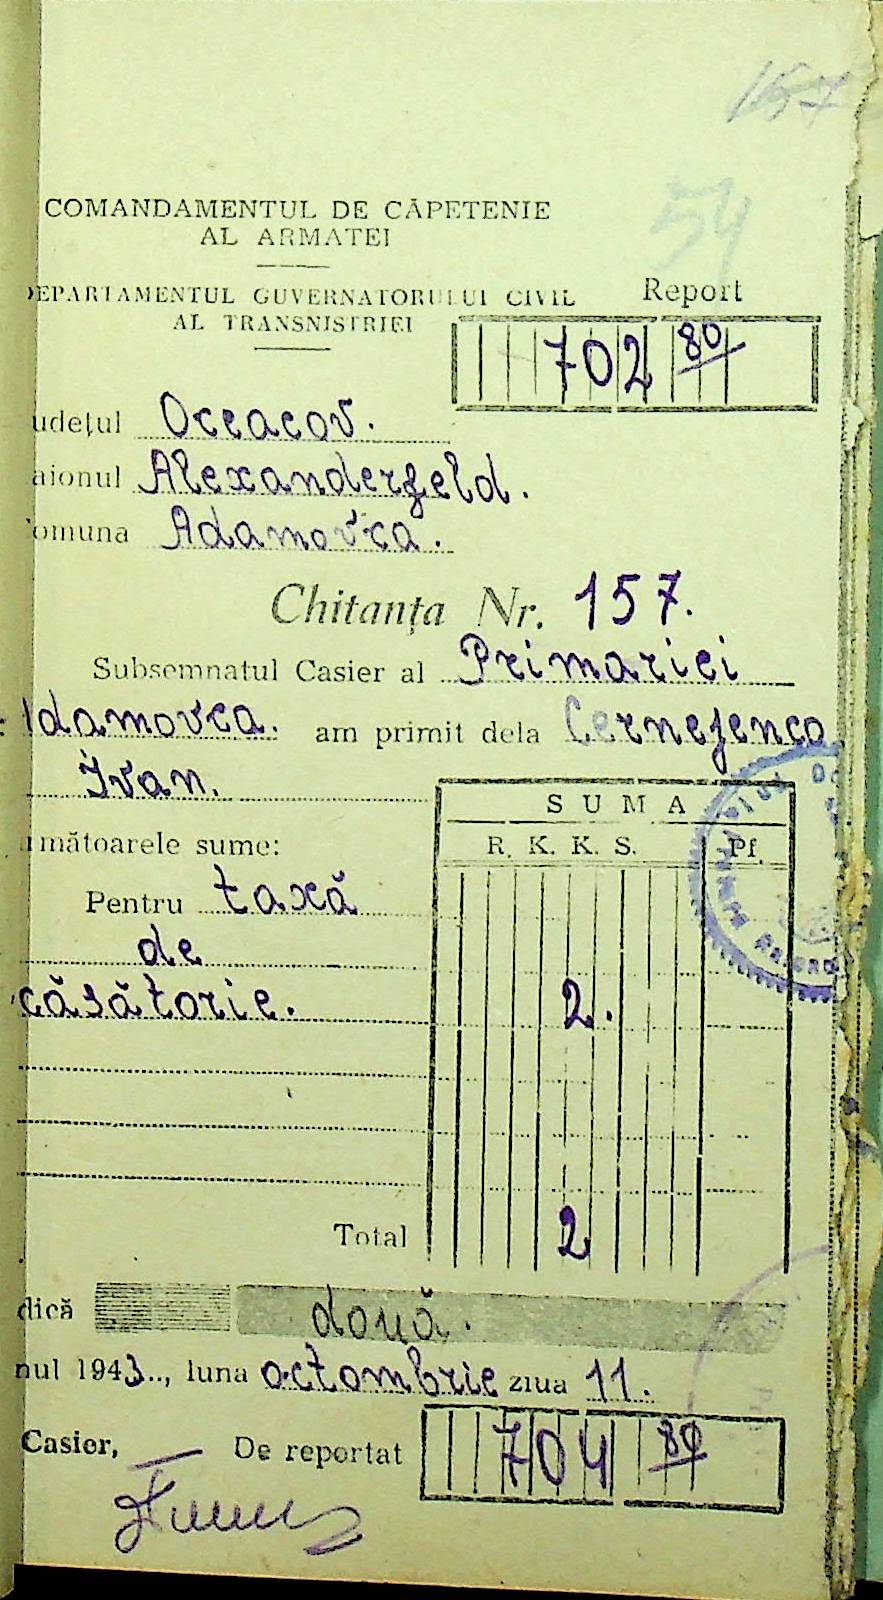 157
54
COMANDAMENTUL DE CĂPETENIE
AL ARMATEI
DEPARTAMENTUL GUVERNATORULUI CIVIL
AL TRANSNISTRIEI
Report
702 80
udețul Oceacov.
aionul Alexanderfeld.
omuna Adamovca.
Chitanța Nr. 157.
Subsemnatul Casier al Primariei
Adamovca. am primit dela Cernejenco
Ivan.
SUMA
R. K. K. S. Pf.
rmătoarele sume:
Pentru taxă
de
căsătorie. 2.
Total 2
dică două.
nul 1943.., luna octombrie ziua 11.
Casier, De reportat 704 80